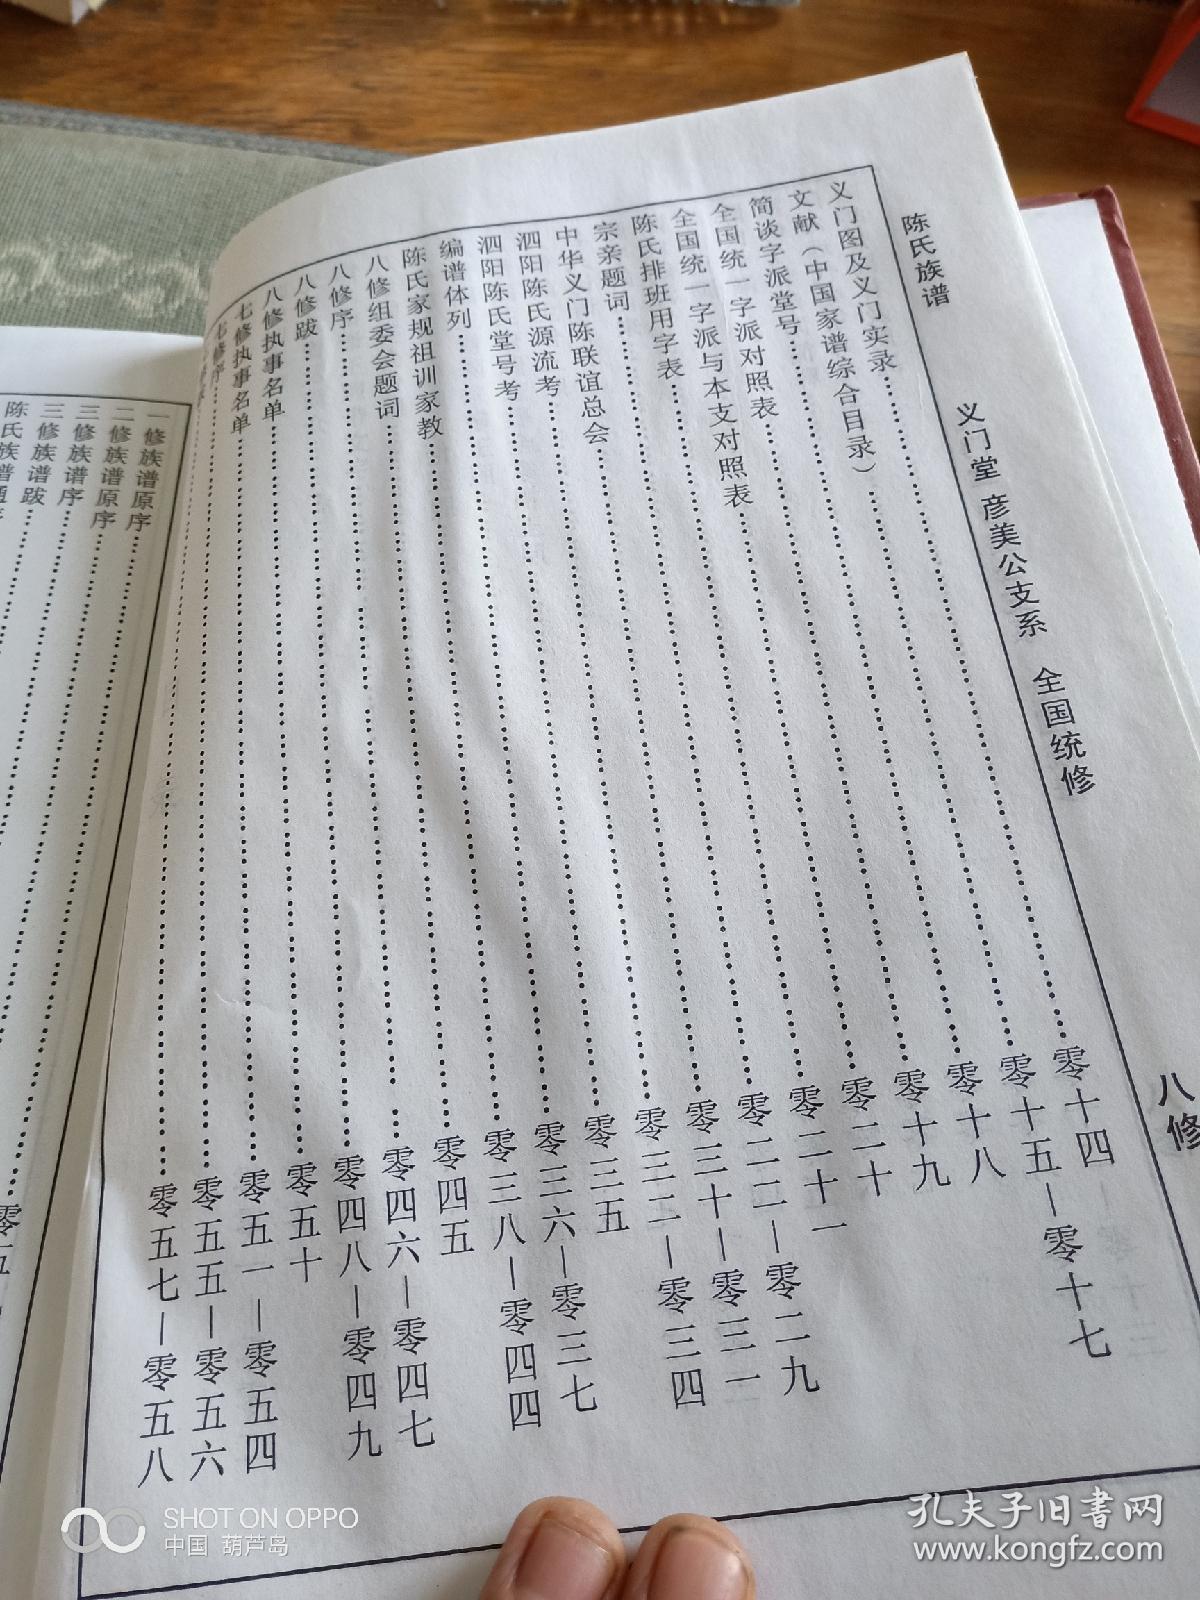 陈氏族谱
义门堂 彦美公支系 全国统修
八修
义门图及义门实录……零十四
文献（中国家谱综合目录）……零十五—零十七
简谈字派堂号……零十八
全国统一字派对照表……零十九
全国统一字派与本支对照表……零二十
陈氏排班用字表……零二十一
宗亲题词……零二二—零二九
中华义门陈联谊总会……零三十—零三一
泗阳陈氏源流考……零三二—零三四
泗阳陈氏堂号考……零三五
编谱体列……零三六—零三七
陈氏家规祖训家教……零三八—零四四
八修组委会题词……零四五
八修序……零四六—零四七
八修跋……零四八—零四九
八修执事名单……零五十
七修执事名单……零五一—零五四
七修序……零五五—零五六
……零五七—零五八
一修族谱原序
二修族谱原序
三修族谱序
三修族谱跋
陈氏族谱通
SHOT ON OPPO
中国 葫芦岛
孔夫子旧书网
www.kongfz.com